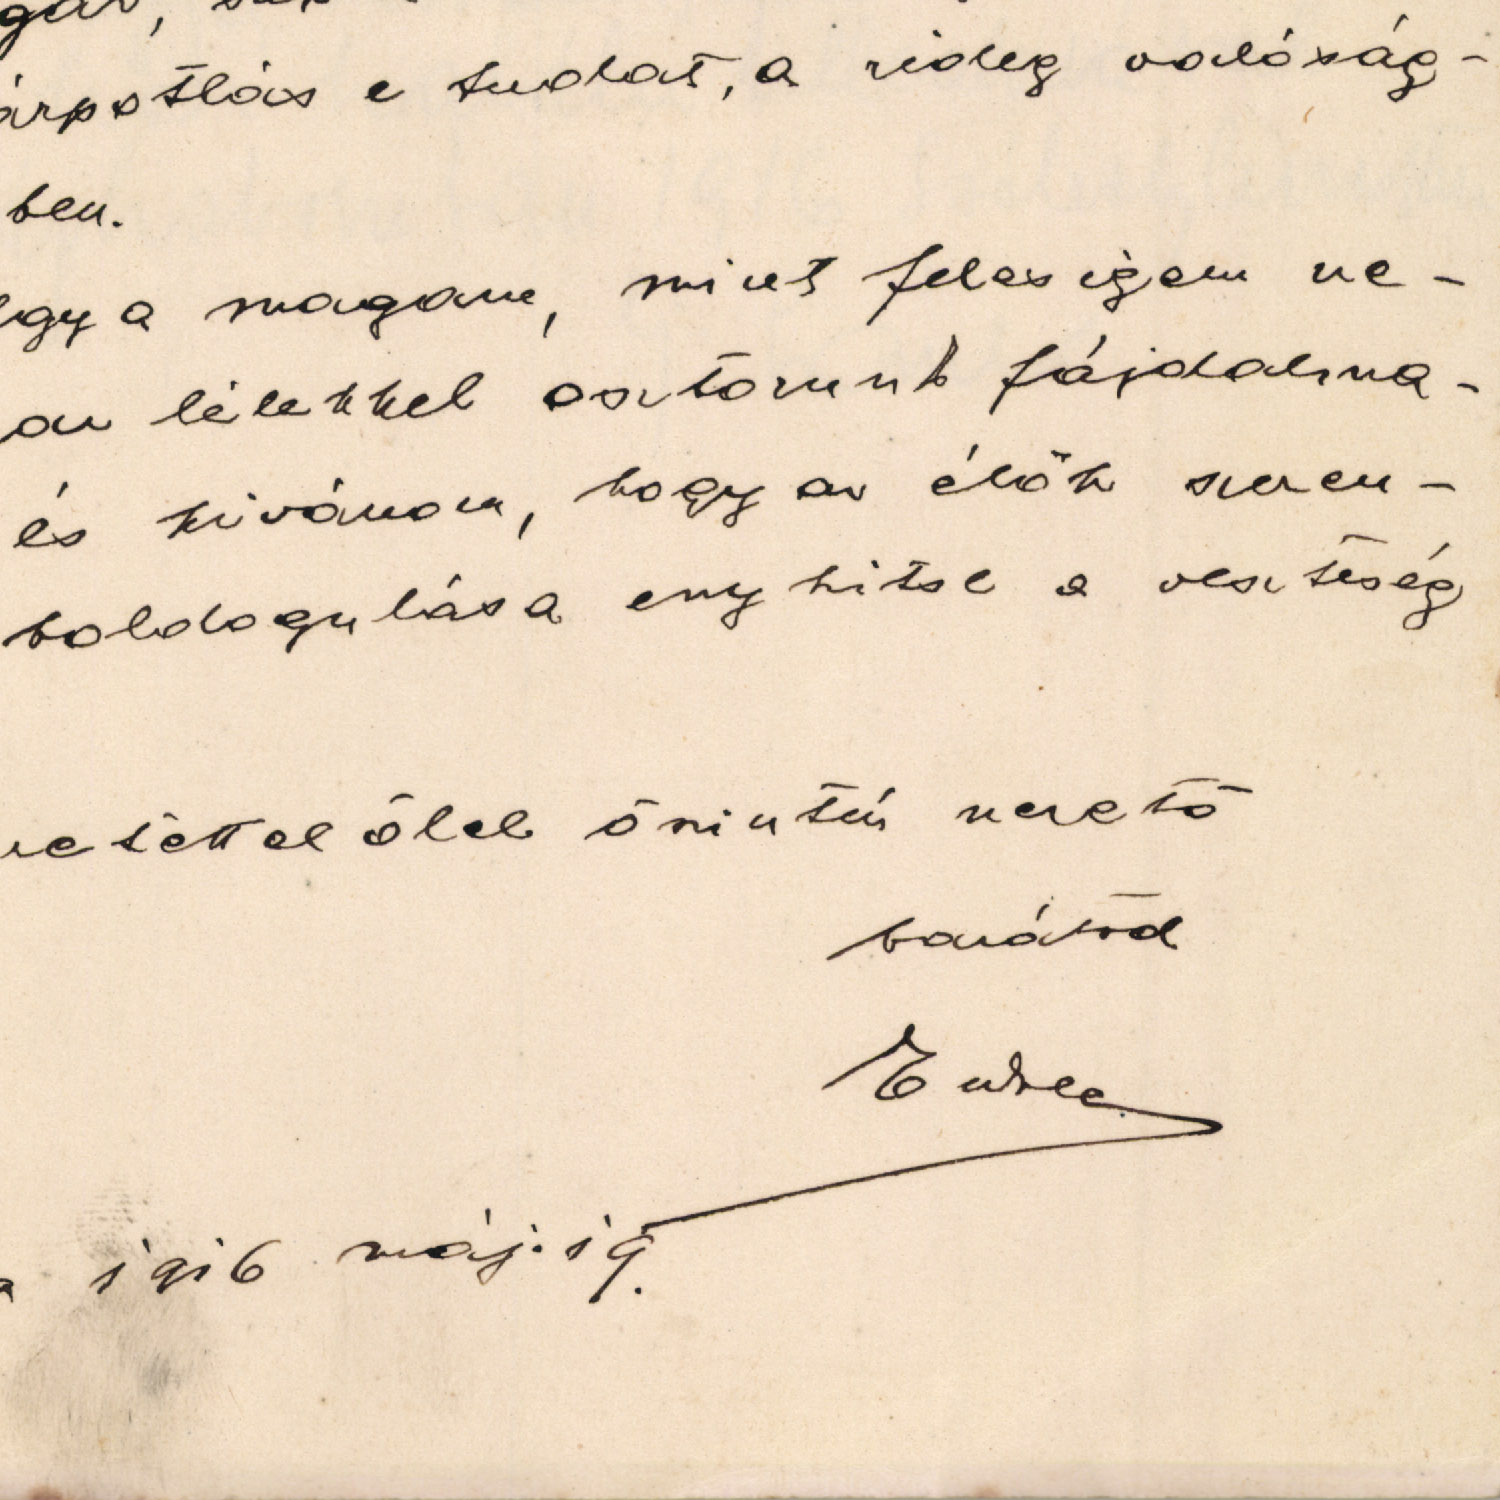 árpótlás e tudat, a rideg valóság-
ben.
úgy a magam, mint feleségem ne-
lélekkel osztozunk fájdalma-
és kivánom, hogy az élők szeren-
boldogulása enyhitse a veszteség
retettel ölel őszintén szerető
barátod
Endre
1916 máj. 19.